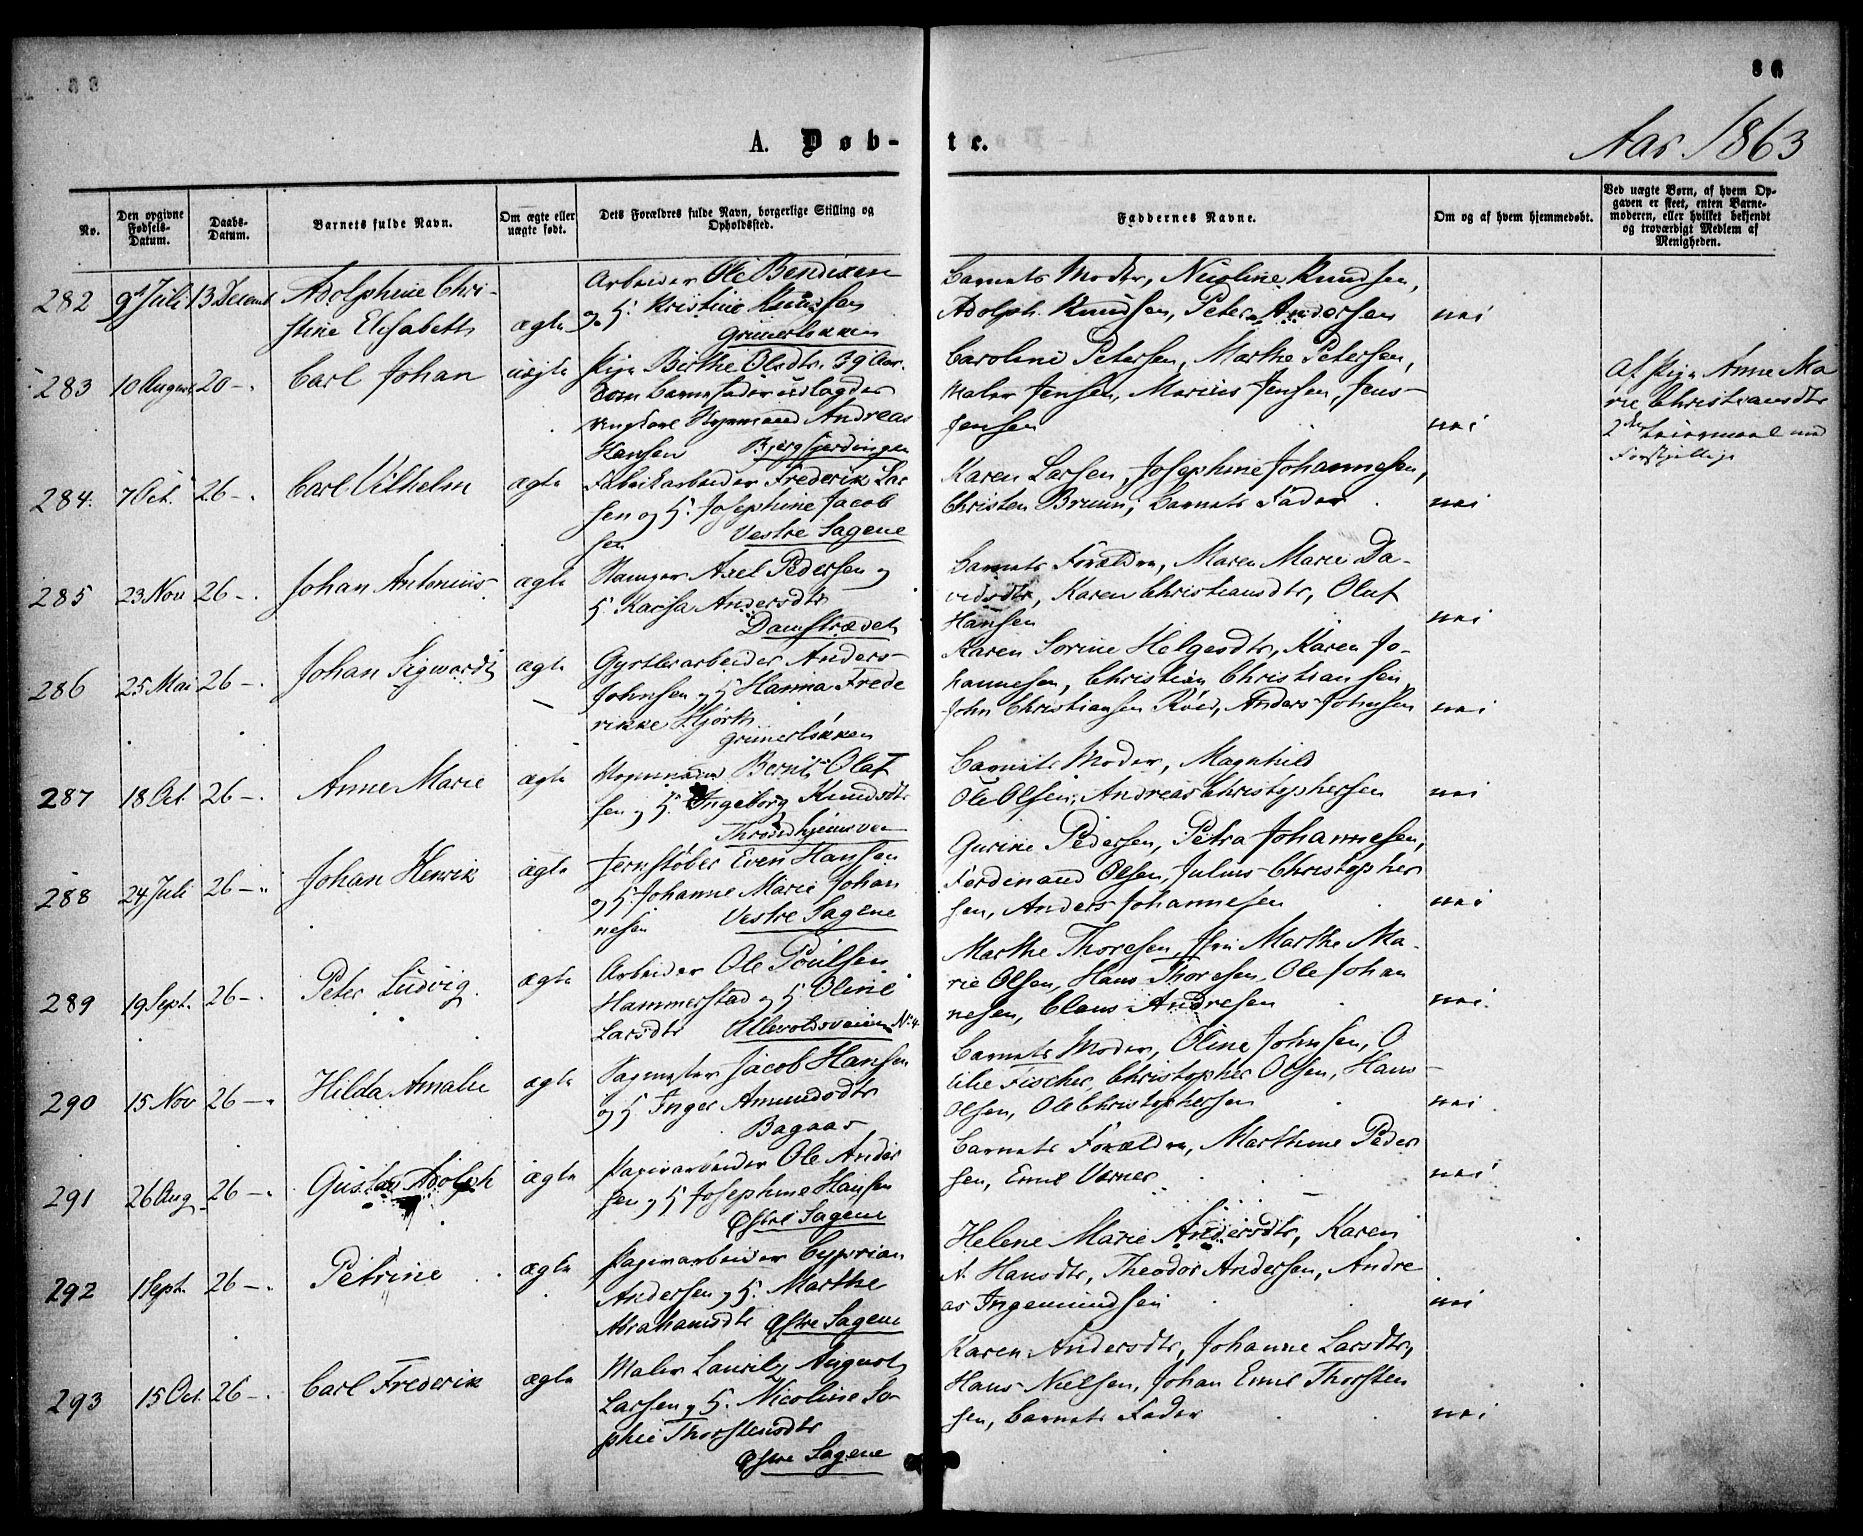 86
Aar 1863
A. Døb-
te.
No.
Den opgivne Fødsels-Datum.
Daabs-Datum.
Barnets fulde Navn.
Om ægte eller uægte født.
Dets Forældres fulde Navn, borgerlige Stilling og Opholdssted.
Faddernes Navne.
Om og af hvem hjemmedøbt.
Ved uægte Børn, af hvem Opgaven er skeet, enten Barnemoderen, eller hvilket bekjendt og troværdigt Medlem af Menigheden.
282 9de Juli 13 Decemb Adolphine Chri-
stine Elisabeth ægte
Arbeider Ole Bendixen
og H. Kristine Knudsen
Grünerløkken
Barnets Moder, Nicoline Knudsen,
Adolph Knudsen, Peter Andersen nei
283 10 August 20 -. Carl Johan uægte
Pige Birthe Olsdtr. 39 Aar.
Som Barnefader udlagdes
ungkarl Kjøremand Andreas
Hansen Bjergfjerdingen
Caroline Petersen, Marthe Petersen,
Maler Jensen, Marius Jensen, Jens
Jensen nei
Af Pige Anne Ma
rie Christiansdtr
2den Leiermaal med
Forskjellige
284. 7 Oct. 26 -. Carl Vilhelm ægte
Fabrikarbeider Frederik Lar
sen og H. Josephine Jacob
sen Vestre Sagene
Karen Larsen, Josephine Johannesen,
Christen Bruun, Barnets Fader. nei
285 23 Nov 26 -. Johan Antonius ægte
Axel Pedersen og
H. Karisa Andersdtr
Damstrædet
Barnets Forældre, Maren Marie Da-
vidsdtr, Karen Christiansdtr, Oluf
Hansen nei
286 25 Mai 26 -. Johan Sigwardt ægte
Gjørtlerarbeider Anders
Johnsen og H Hanna Frede
rikke Hjorth
Grünerløkken
Karen Sorine Helgesdtr, Karen Jo-
hannesen, Christian Christiansen,
John Christiansen Røed, Anders Johnsen nei
287 18 Oct. 26 -. Anne Marie ægte
Kjøremand Bernt Olaf
sen og H. Ingeborg Knudsdtr
Throndhjemsveien
Barnets Moder, Magnhild
Ole Olsen, Andreas Christophersen nei
288 24 Juli 26 -. Johan Henrik ægte
Jernstøber Even Hansen
og H. Johanne Marie Johan
nesen Vestre Sagene
Gurine Pedersen, Petra Johannesen,
Ferdinand Olsen, Julius Christopher
sen, Anders Johannesen nei
289 19 Sept. 26 -. Peter Ludvig. ægte
Arbeider Ole Poulsen
Hammerstad og H Oline
Larsdtr Ullevoldsveien No 4.
Marthe Thoresen, Marthe Ma-
rie Olsen, Hans Thoresen, Ole Johan
nesen, Claus Andresen nei.
290 15 Nov 26 -. Hilda Amalie ægte
Sagmester Jacob Hansen
og H Inger Amundsdtr
Bagaas
Barnets Moder, Oline Johnsen, O
tilie Fischer, Christopher Olsen, Hans
Olsen, Ole Christophersen nei
291 26 Aug. 26 -. Gustav Adolph ægte
Papirarbeider Ole Ander
sen og H Josephine Hansen
Østre Sagene
Barnets Forældre, Marthine Peder
sen, Emil Varner nei
292 1 Sept. 26 -. Petrine ægte
Papirarbeider Cyprian
Andersen og H. Marthe
Abrahamsdtr Østre Sagene
Helene Marie Andersdtr, Karen
A. Hansdtr, Theodor Andersen, Andre
as Ingemundsen nei
293 15 Oct. 26 -. Carl Frederik ægte
Maler Lauritz August
Larsen og H. Nicoline So-
phie Thorstensdtr
Østre Sagene
Karen Andersdtr, Johanne Larsdtr,
Hans Nielsen, Johan Emil Thorsten
sen, Barnets Fader nei